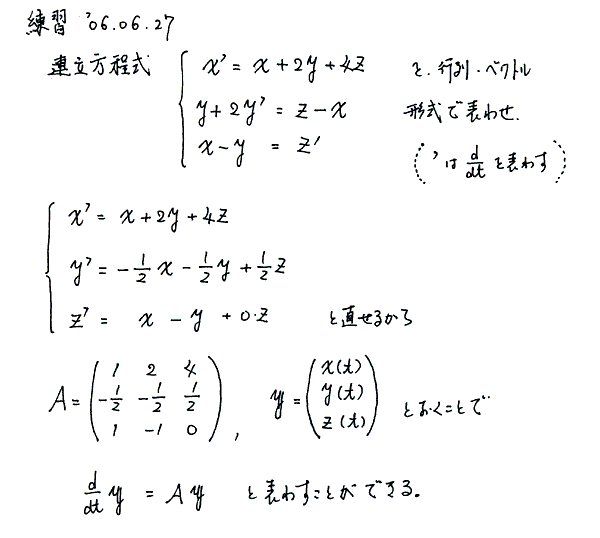 練習 '06.06.27
連立方程式 { x' = x + 2y + 4z を、行列・ベクトル
y + 2y' = z − x 形式で表わせ.
x − y = z' ( ' は d/dt を表わす )
{ x' = x + 2y + 4z
y' = −1/2 x − 1/2 y + 1/2 z
z' = x − y + 0·z と直せるから
A = ( 1 2 4 ; −1/2 −1/2 1/2 ; 1 −1 0 ) , 𝕪 = ( x(t) ; y(t) ; z(t) ) とおくことで
d/dt 𝕪 = A𝕪 と表わすことができる.